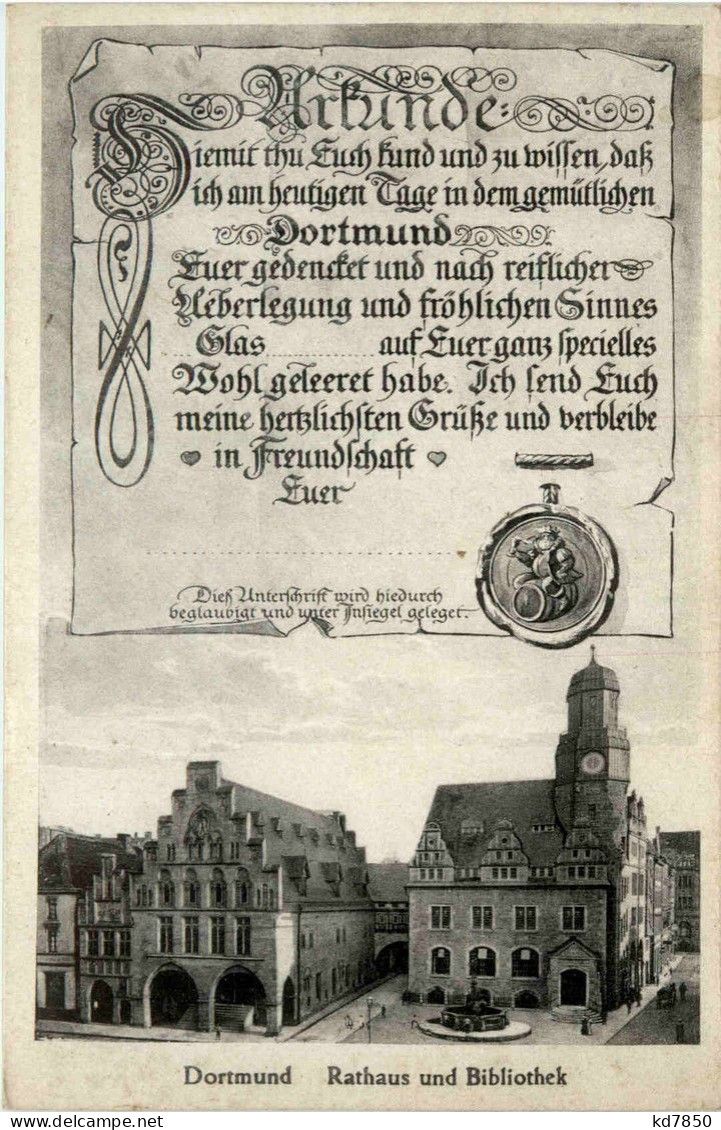 Urkunde:
Hiemit thu Euch kund und zu wissen, daß
ich am heutigen Tage in dem gemütlichen
Dortmund
Euer gedencket und nach reiflicher
Ueberlegung und fröhlichen Sinnes
Glas auf Euer ganz specielles
Wohl geleeret habe. Ich send Euch
meine hertzlichsten Grüße und verbleibe
in Freundschaft
Euer
Dieß Unterschrift wird hiedurch
beglaubigt und unter Insiegel geleget.
Dortmund Rathaus und Bibliothek
kd7850